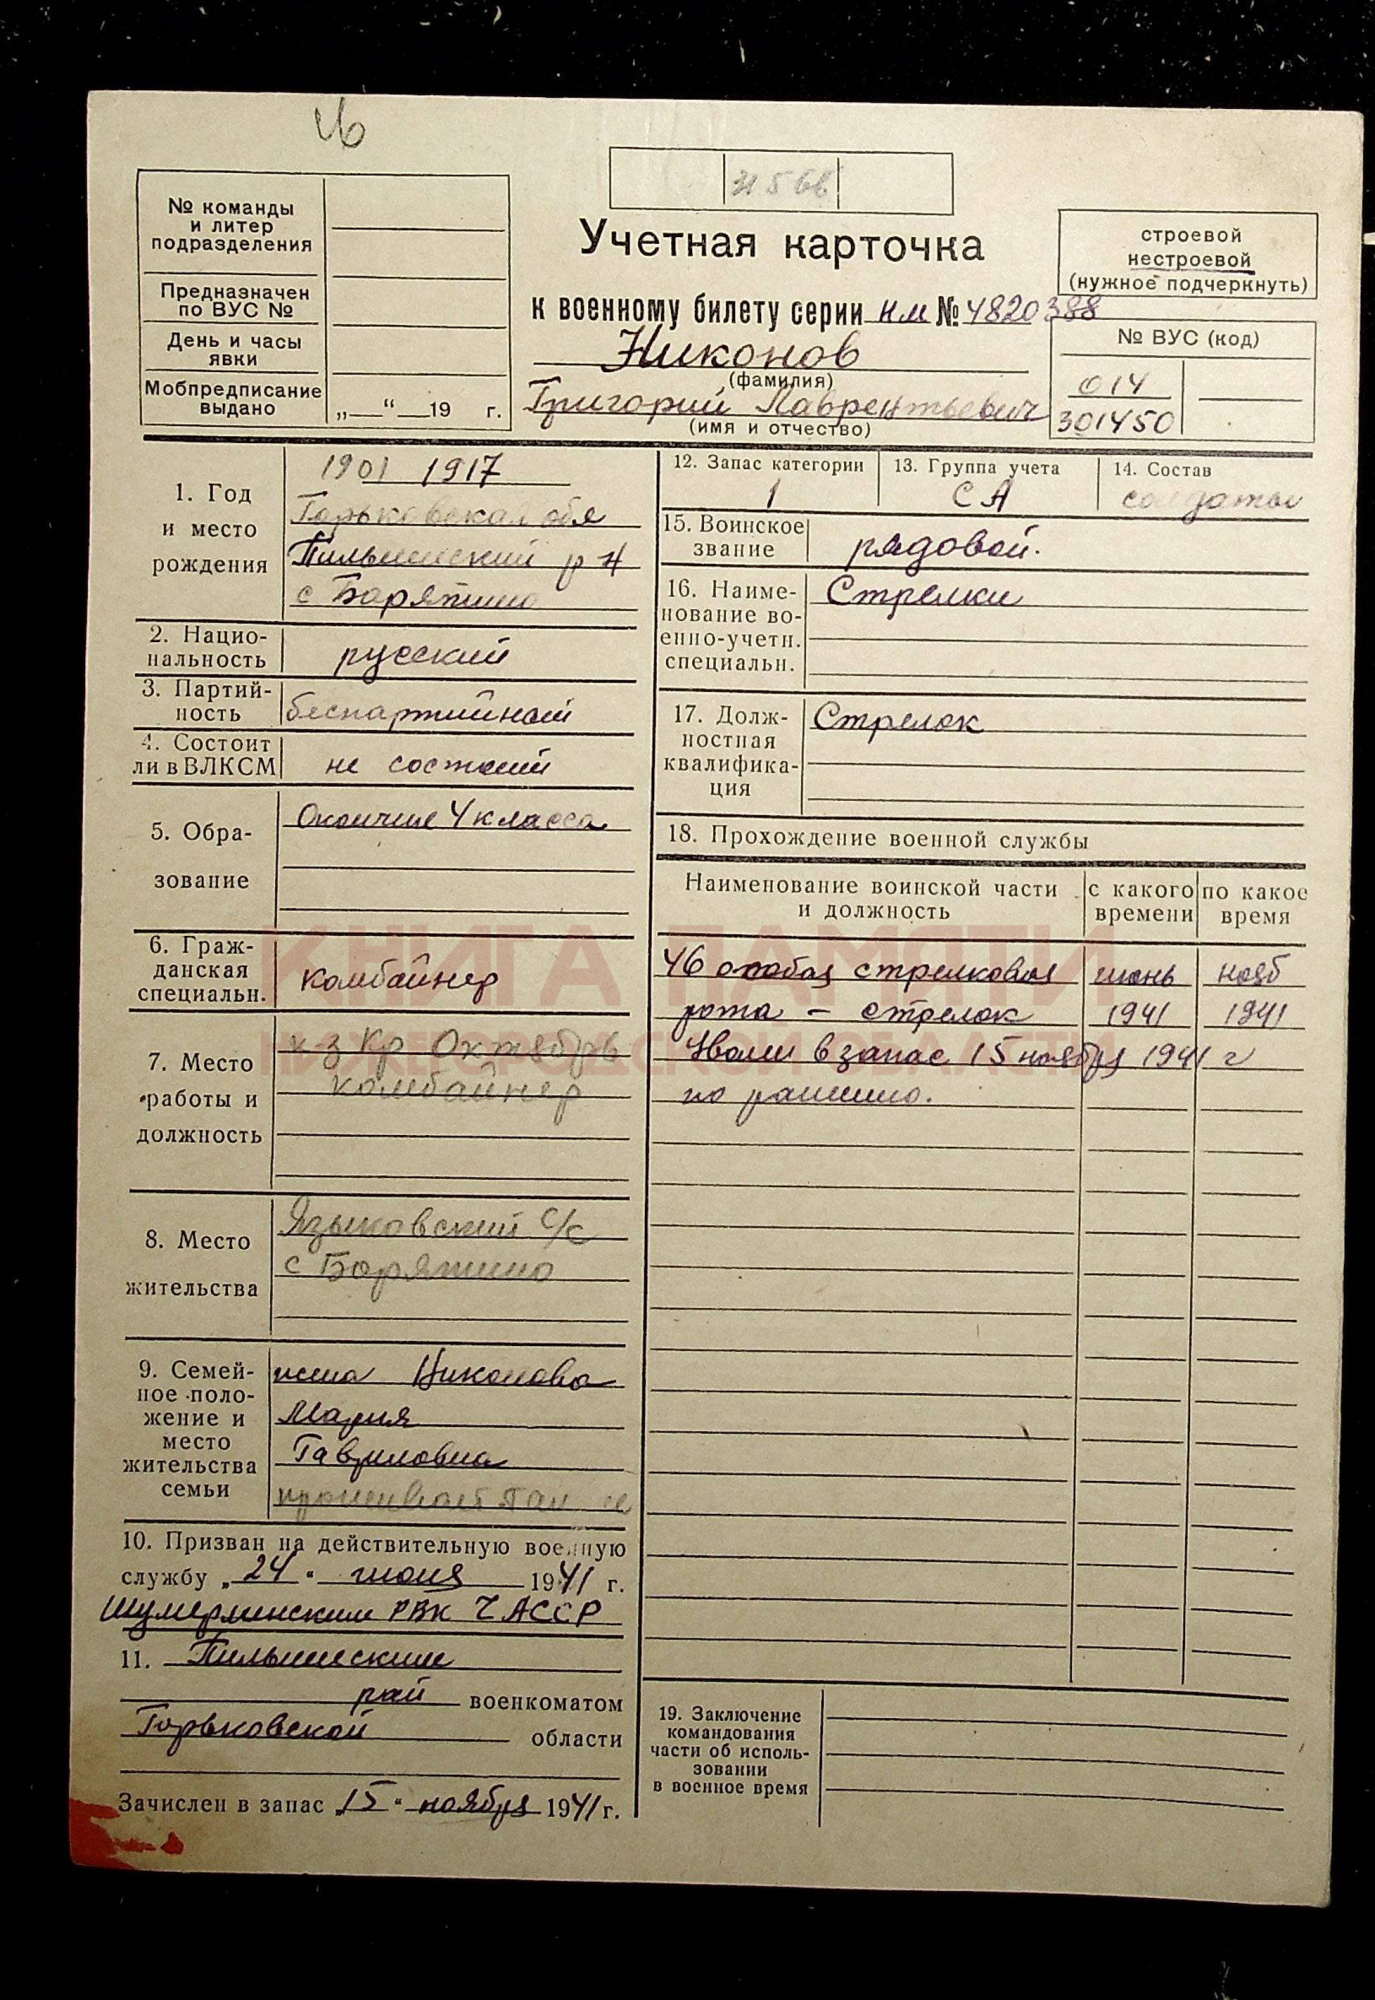 № команды
и литер
подразделения
Предназначен
по ВУС №
День и часы
явки
Мобпредписание
выдано
„ “ 19 г.
Учетная карточка
к военному билету серии НМ № 4820388
Никонов
(фамилия)
Григорий Лаврентьевич
(имя и отчество)
строевой
нестроевой
(нужное подчеркнуть)
№ ВУС (код)
014
301450
1. Год
и место
рождения
1901 1917
Горьковская обл
Пильнинский р н
с Борятино
2. Нацио-
нальность
русский
3. Партий-
ность
беспартийный
4. Состоит
ли в ВЛКСМ
не состоит
5. Обра-
зование
Окончил 4 класса
6. Граж-
данская
специальн.
комбайнер
7. Место
работы и
должность
к-з Кр Октябрь
комбайнер
8. Место
жительства
Языковский с/с
с Борятино
9. Семей-
ное поло-
жение и
место
жительства
семьи
жена Никонова
Мария
Гавриловна
проживает там же
10. Призван на действительную военную
службу „24“ июня 1941 г.
Шумерлинским РВК ЧАССР
11. Пильнинским
рай военкоматом
Горьковской области
Зачислен в запас „15“ ноября 1941 г.
12. Запас категории
1
13. Группа учета
СА
14. Состав
солдаты
15. Воинское
звание
рядовой.
16. Наиме-
нование во-
енно-учетн.
специальн.
Стрелки
17. Долж-
ностная
квалифика-
ция
Стрелок
18. Прохождение военной службы
Наименование воинской части
и должность
с какого
времени
по какое
время
46 особая стрелковая июнь нояб
рота – стрелок 1941 1941
Уволен в запас 15 ноября 1941 г
по ранению.
19. Заключение
командования
части об исполь-
зовании
в военное время
КНИГА ПАМЯТИ
НИЖЕГОРОДСКОЙ ОБЛАСТИ